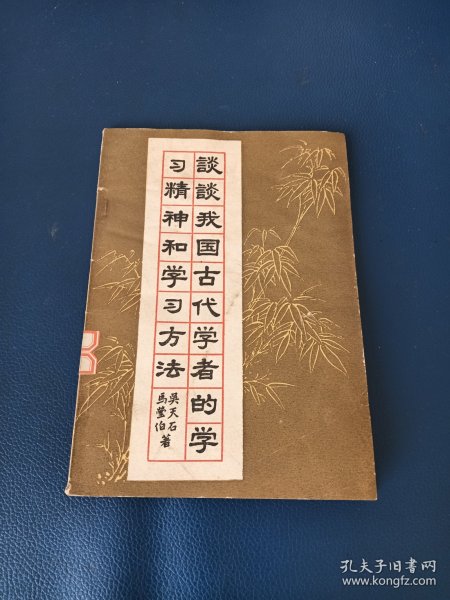 談談我国古代学者的学
习精神和学习方法
吳天石
馬瑩伯著
孔夫子旧书网
www.kongfz.com